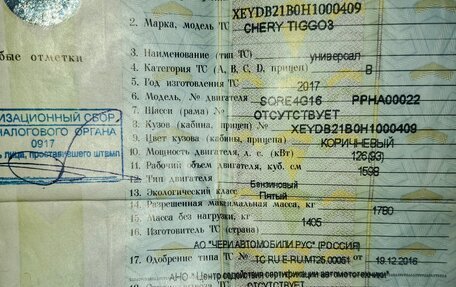 XEYDB21B0H1000409
2. Марка, модель ТС CHERY TIGGO3
ые отметки
3. Наименование (тип ТС) универсал
4. Категория ТС (А, В, С, D, прицеп) В
5. Год изготовления ТС 2017
6. Модель, № двигателя SQRE4G16 PPHA00022
7. Шасси (рама) № ОТСУТСТВУЕТ
8. Кузов (кабина, прицеп) № XEYDB21B0H1000409
9. Цвет кузова (кабины, прицепа) КОРИЧНЕВЫЙ
10. Мощность двигателя, л. с. (кВт) 126(93)
11. Рабочий объем двигателя, куб. см 1598
12. Тип двигателя Бензиновый
13. Экологический класс Пятый
14. Разрешенная максимальная масса, кг 1780
15. Масса без нагрузки, кг 1405
16. Изготовитель ТС (страна)
АО "ЧЕРИ АВТОМОБИЛИ РУС" (РОССИЯ)
17. Одобрение типа ТС № ТС RU E-RU.MT25.00051 от 19.12.2016
АНО "Центр содействия сертификации автомототехники"
ОТСУТСТВУЕТ
ИЗАЦИОННЫЙ СБОР
НАЛОГОВОГО ОРГАНА
0917
лица, проставившего штамп